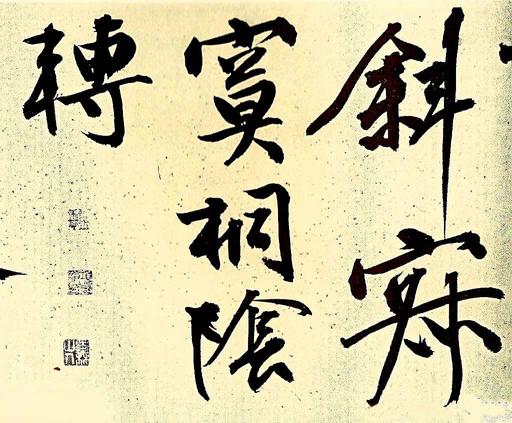 斜寂
寞桐陰
轉